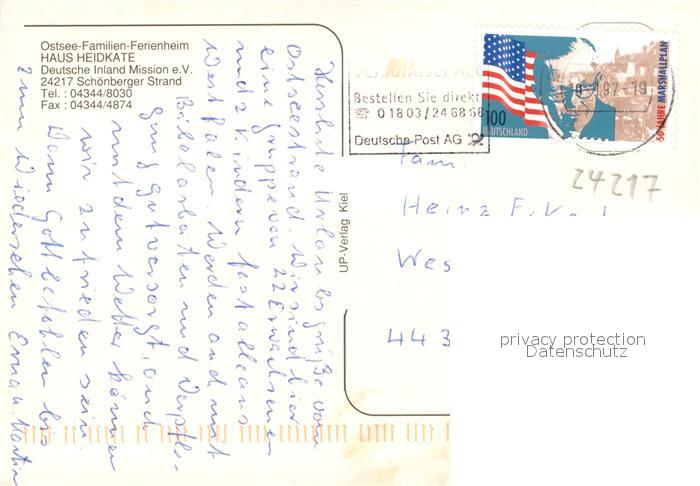 Ostsee-Familien-Ferienheim
HAUS HEIDKATE
Deutsche Inland Mission e.V.
24217 Schönberger Strand
Tel. : 04344/8030
Fax : 04344/4874
Herzliche Urlaubsgrüße vom
Ostseestrand. Wir sind hier
eine Gruppe von 22 Erwachsenen
und 2 Kindern fast alle aus
Westfalen. Werden auch mit
Bibelarbeiten und Verpfle-
gung gut versorgt, auch
mit dem Wetter können
wir zufrieden sein.
Dann Gott befohlen bis
zum Wiedersehen Erna u. Martin
UP-Verlag Kiel
Bestellen Sie direkt
☎ 01803/246868
Deutsche Post AG
100
DEUTSCHLAND
50 JAHRE MARSHALLPLAN
97-19
24217
Fam.
Heinz
Wes
443
privacy protection
Datenschutz